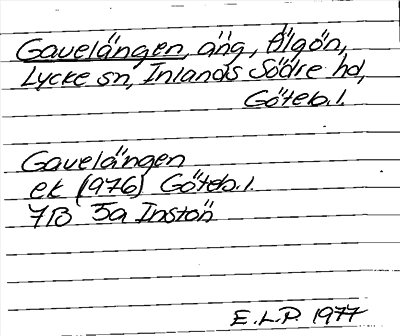 Gavelängen, äng, Älgön,
Lycke sn, Inlands Södre hd,
Göteb.l.
Gavelängen
ek (1976) Göteb.l.
7B 5a Instön
E.L.P. 1977